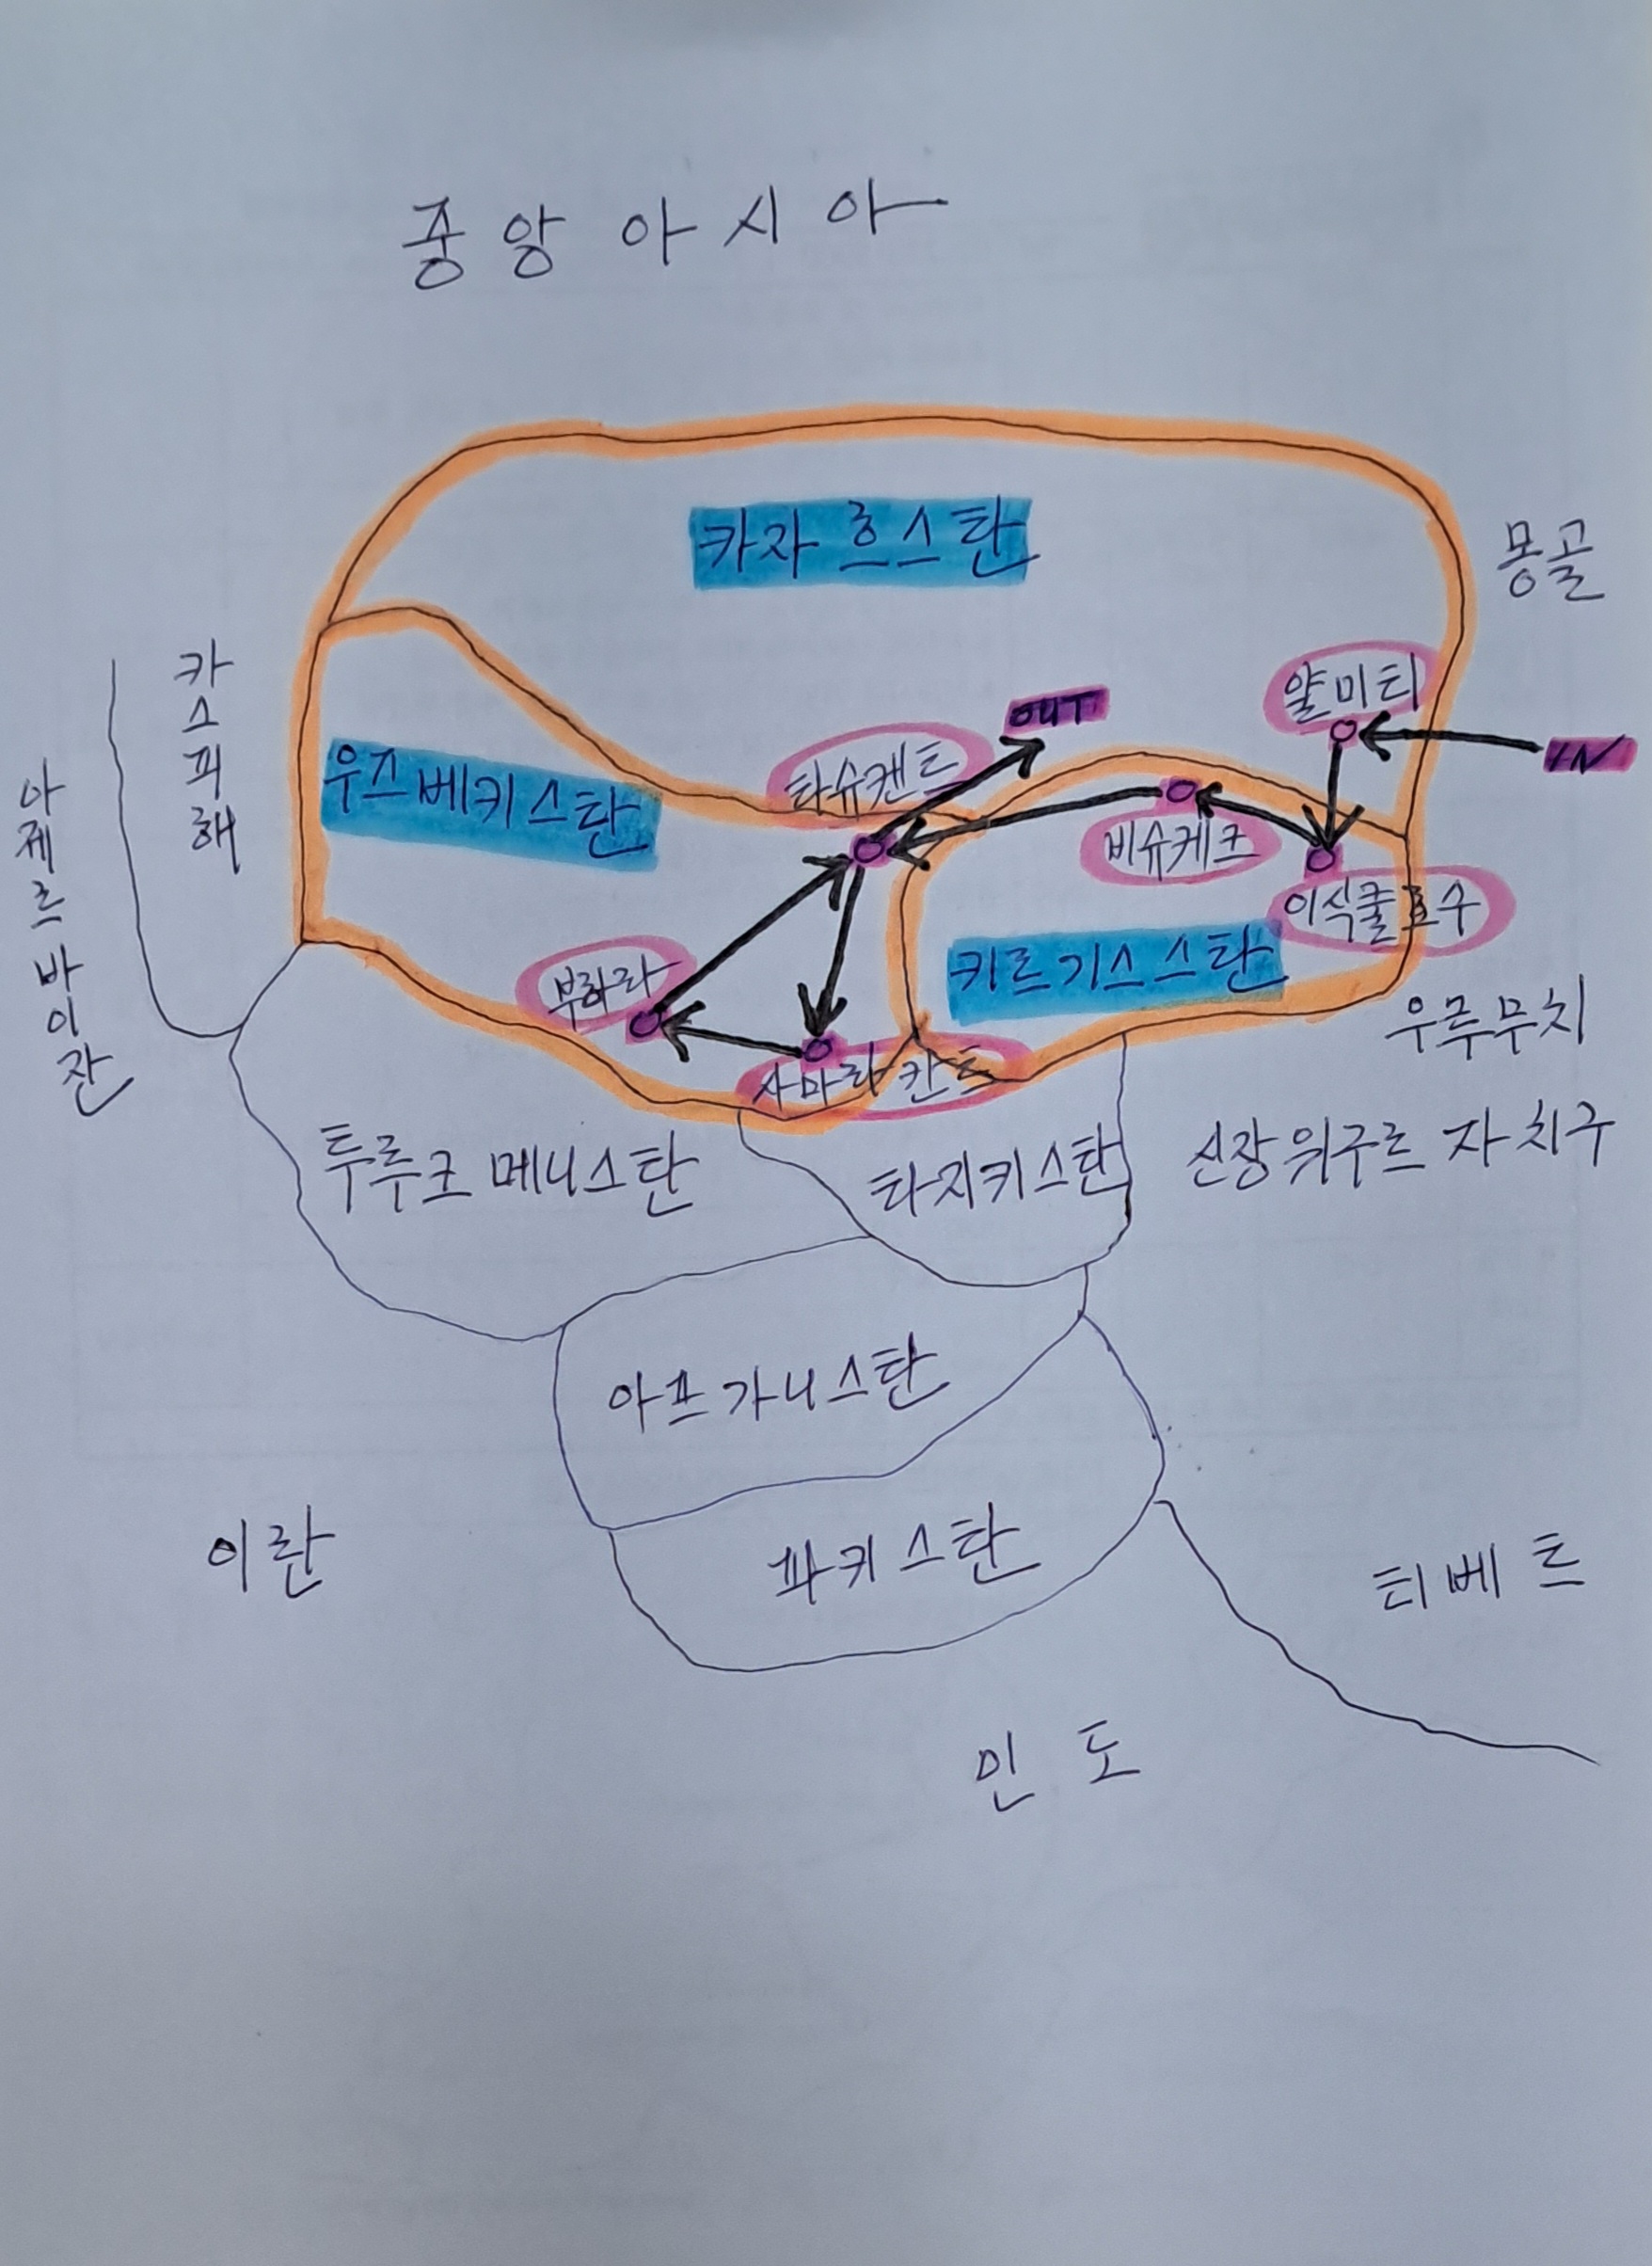 중앙아시아
카자흐스탄
몽골
카스피해
얄미티
OUT
IN
타슈캔트
우즈베키스탄
아제르바이잔
비슈케크
이식쿨호수
키르기스스탄
부하라
우루무치
사마라칸트
투루크메니스탄
타지키스탄
신장위구르 자치구
아프가니스탄
이란
파키스탄
티베트
인도